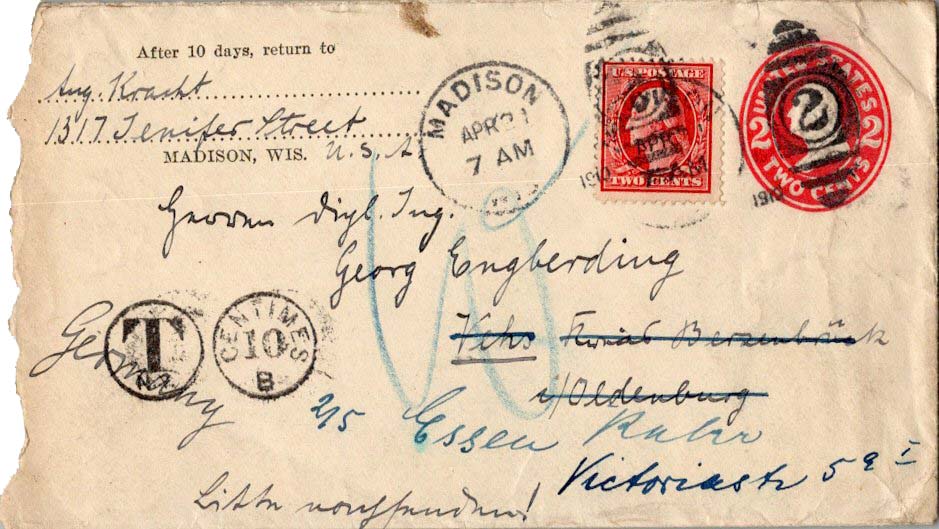 After 10 days, return to
Aug. Kracht
1317 Jenifer Street
MADISON, WIS. U.S.A
MADISON
APR 21
7 AM
WIS.
U.S. POSTAGE
TWO CENTS
1910
UNITED STATES
2 2
TWO CENTS
1910
Herren Dipl. Ing.
Georg Engberding
Vehs Kreis Bersenbrück
i/Oldenburg
Germany
T
N.Y.
CENTIMES
10
B
2/5 Essen Ruhr
Victoriastr 59 I
Bitte nachsenden!